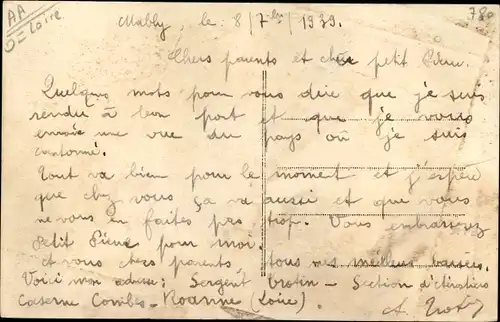 AA
D = Loire
780
Mably, le : 8/7bre/1939.
Chers parents et cher petit Pierre.
Quelques mots pour vous dire que je suis
rendu à bon port et que je vous
envoie une vue du pays où je suis
cantonné.
Tout va bien pour le moment et j'espère
que chez vous ça va aussi et que vous
ne vous en faites pas trop. Vous embrasserez
Petit Pierre pour moi.
et vous chers parents tous mes meilleurs baisers.
Voici mon adresse : Sergent Trotin - Section d'éclaireurs
Caserne Combes - Roanne (Loire).